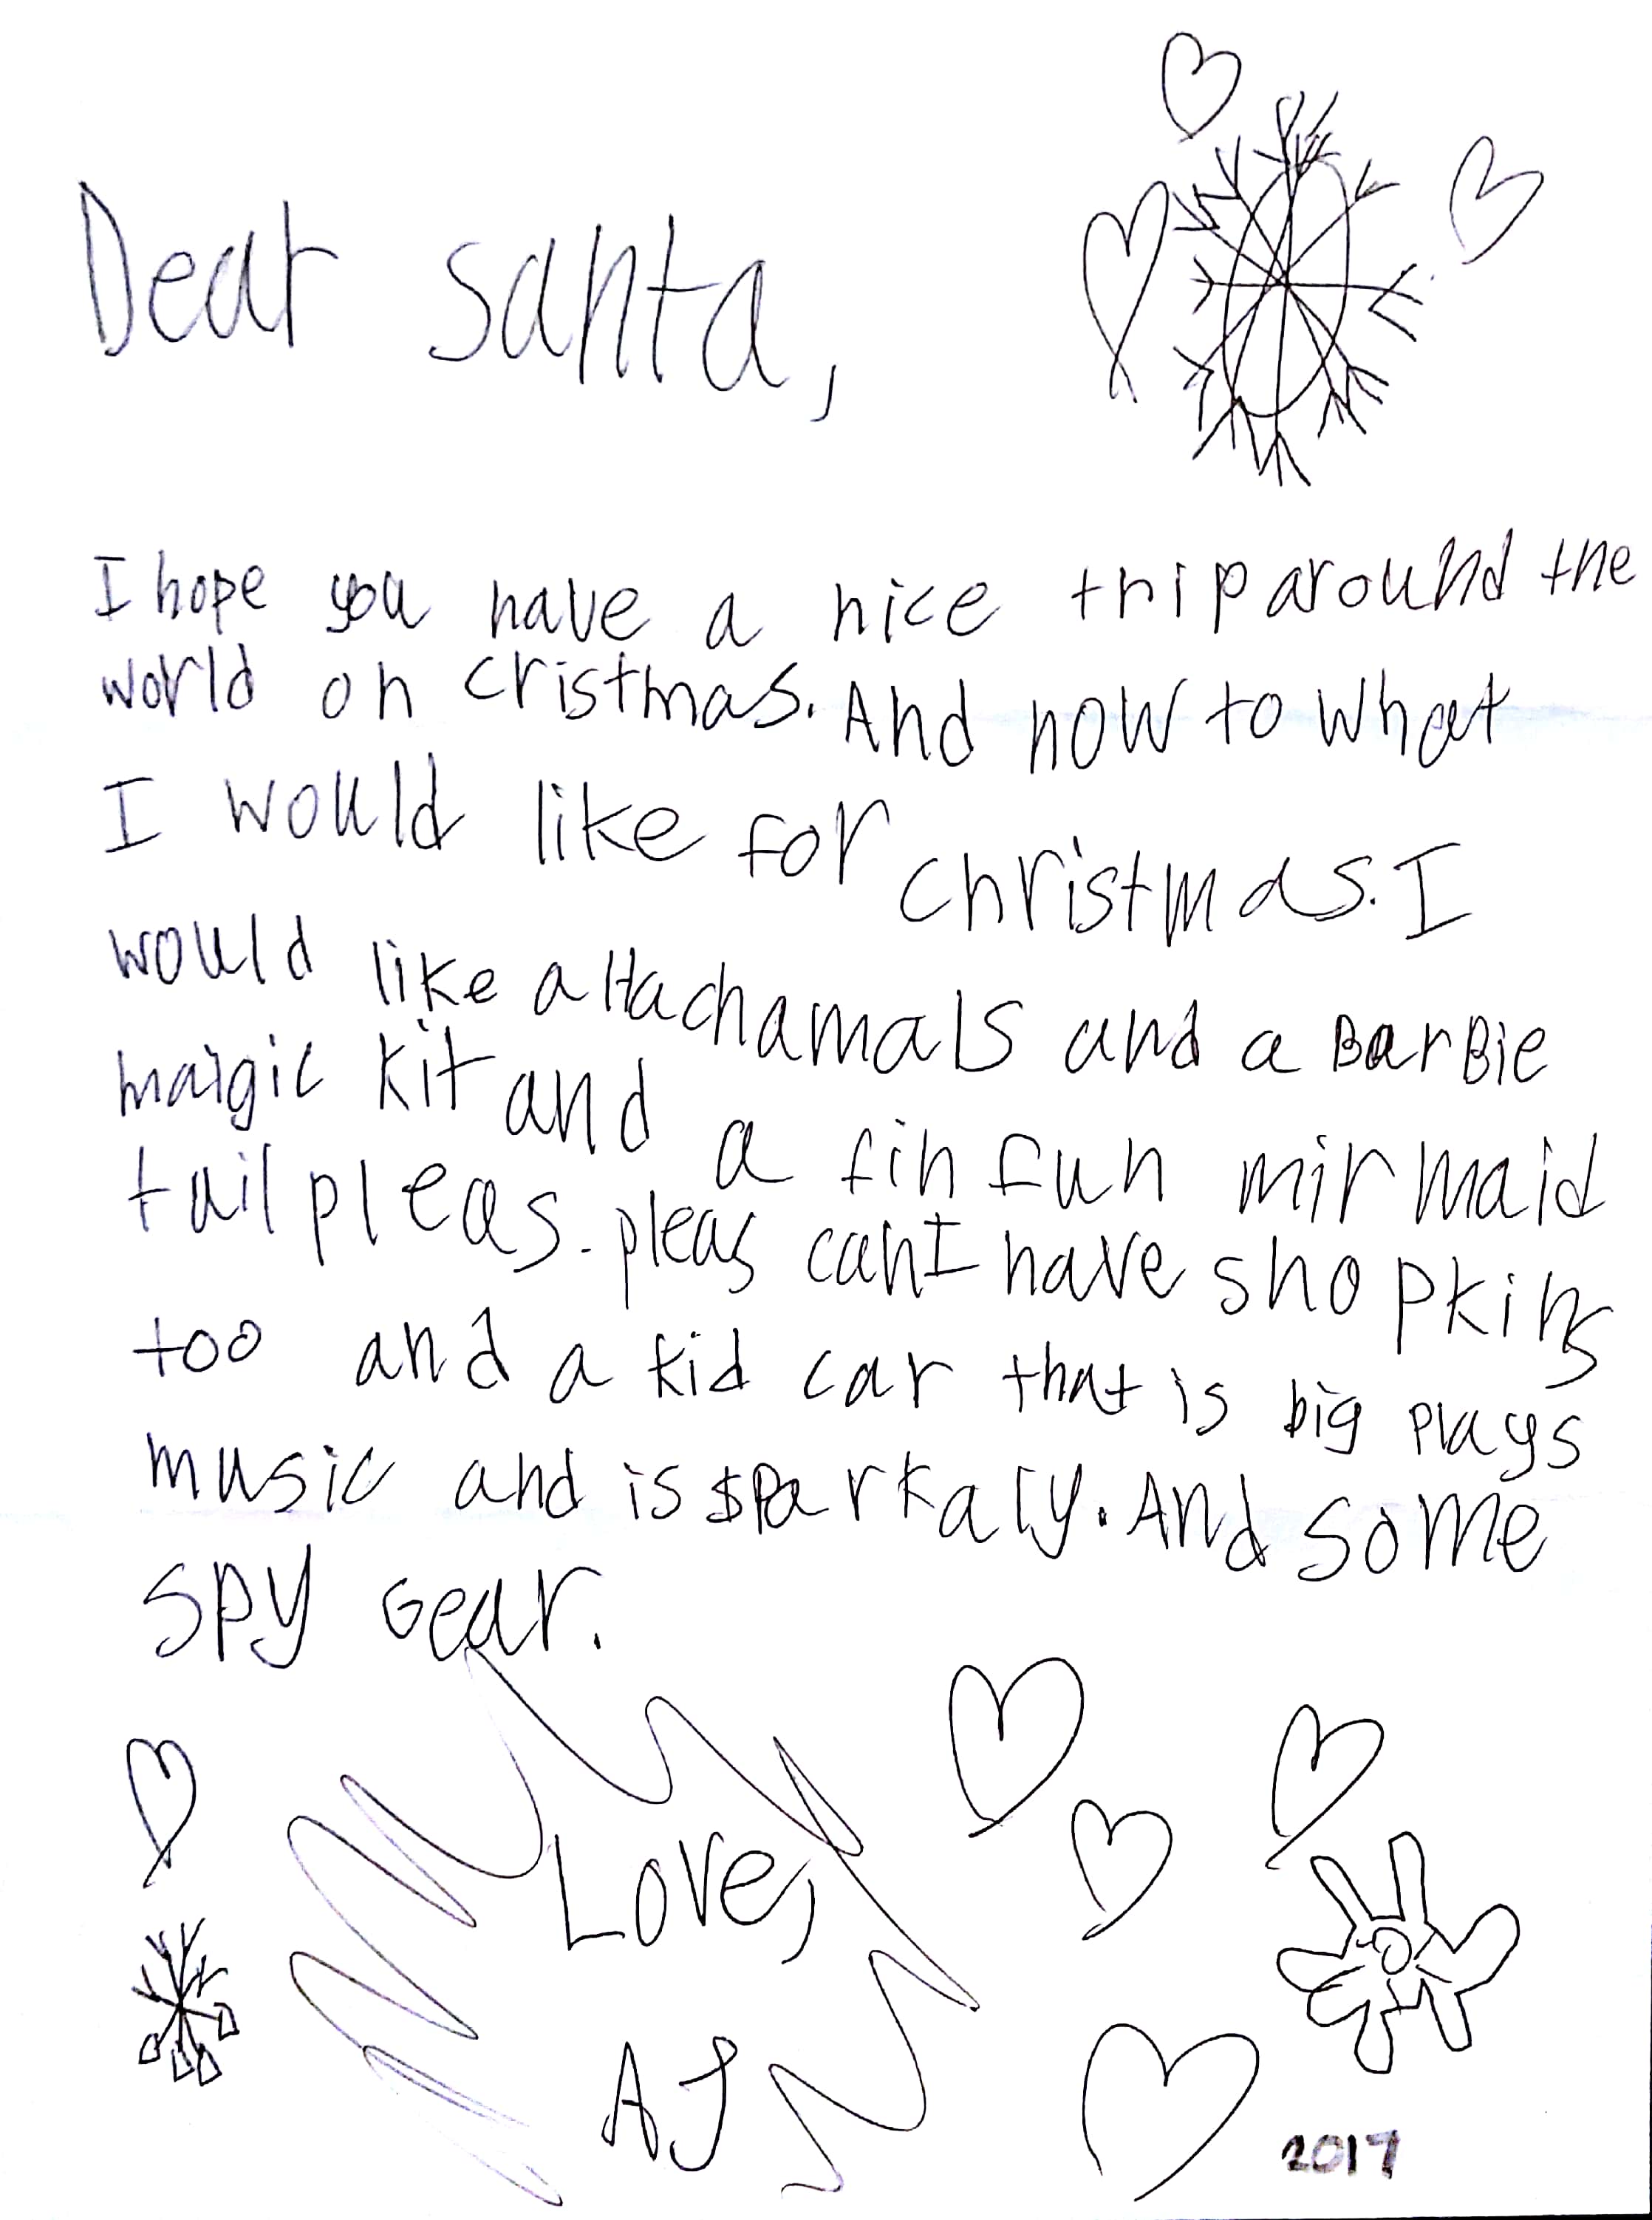 Dear santa,
I hope you have a nice trip around the
world on cristmas. And now to what
I would like for christmas. I
would like a Hachamals and a BarBie
maigic kit and a fin fun mirmaid
tail pleas. pleas can I have shopkins
too and a kid car that is big plays
music and is sparkaly. And some
spy Gear.
Love,
AJ
2017